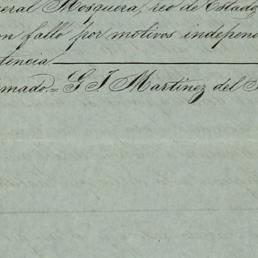 eral Mosquera, reo de Estado
on falló por motivos indepen
tencia
mado = G J Martinez del